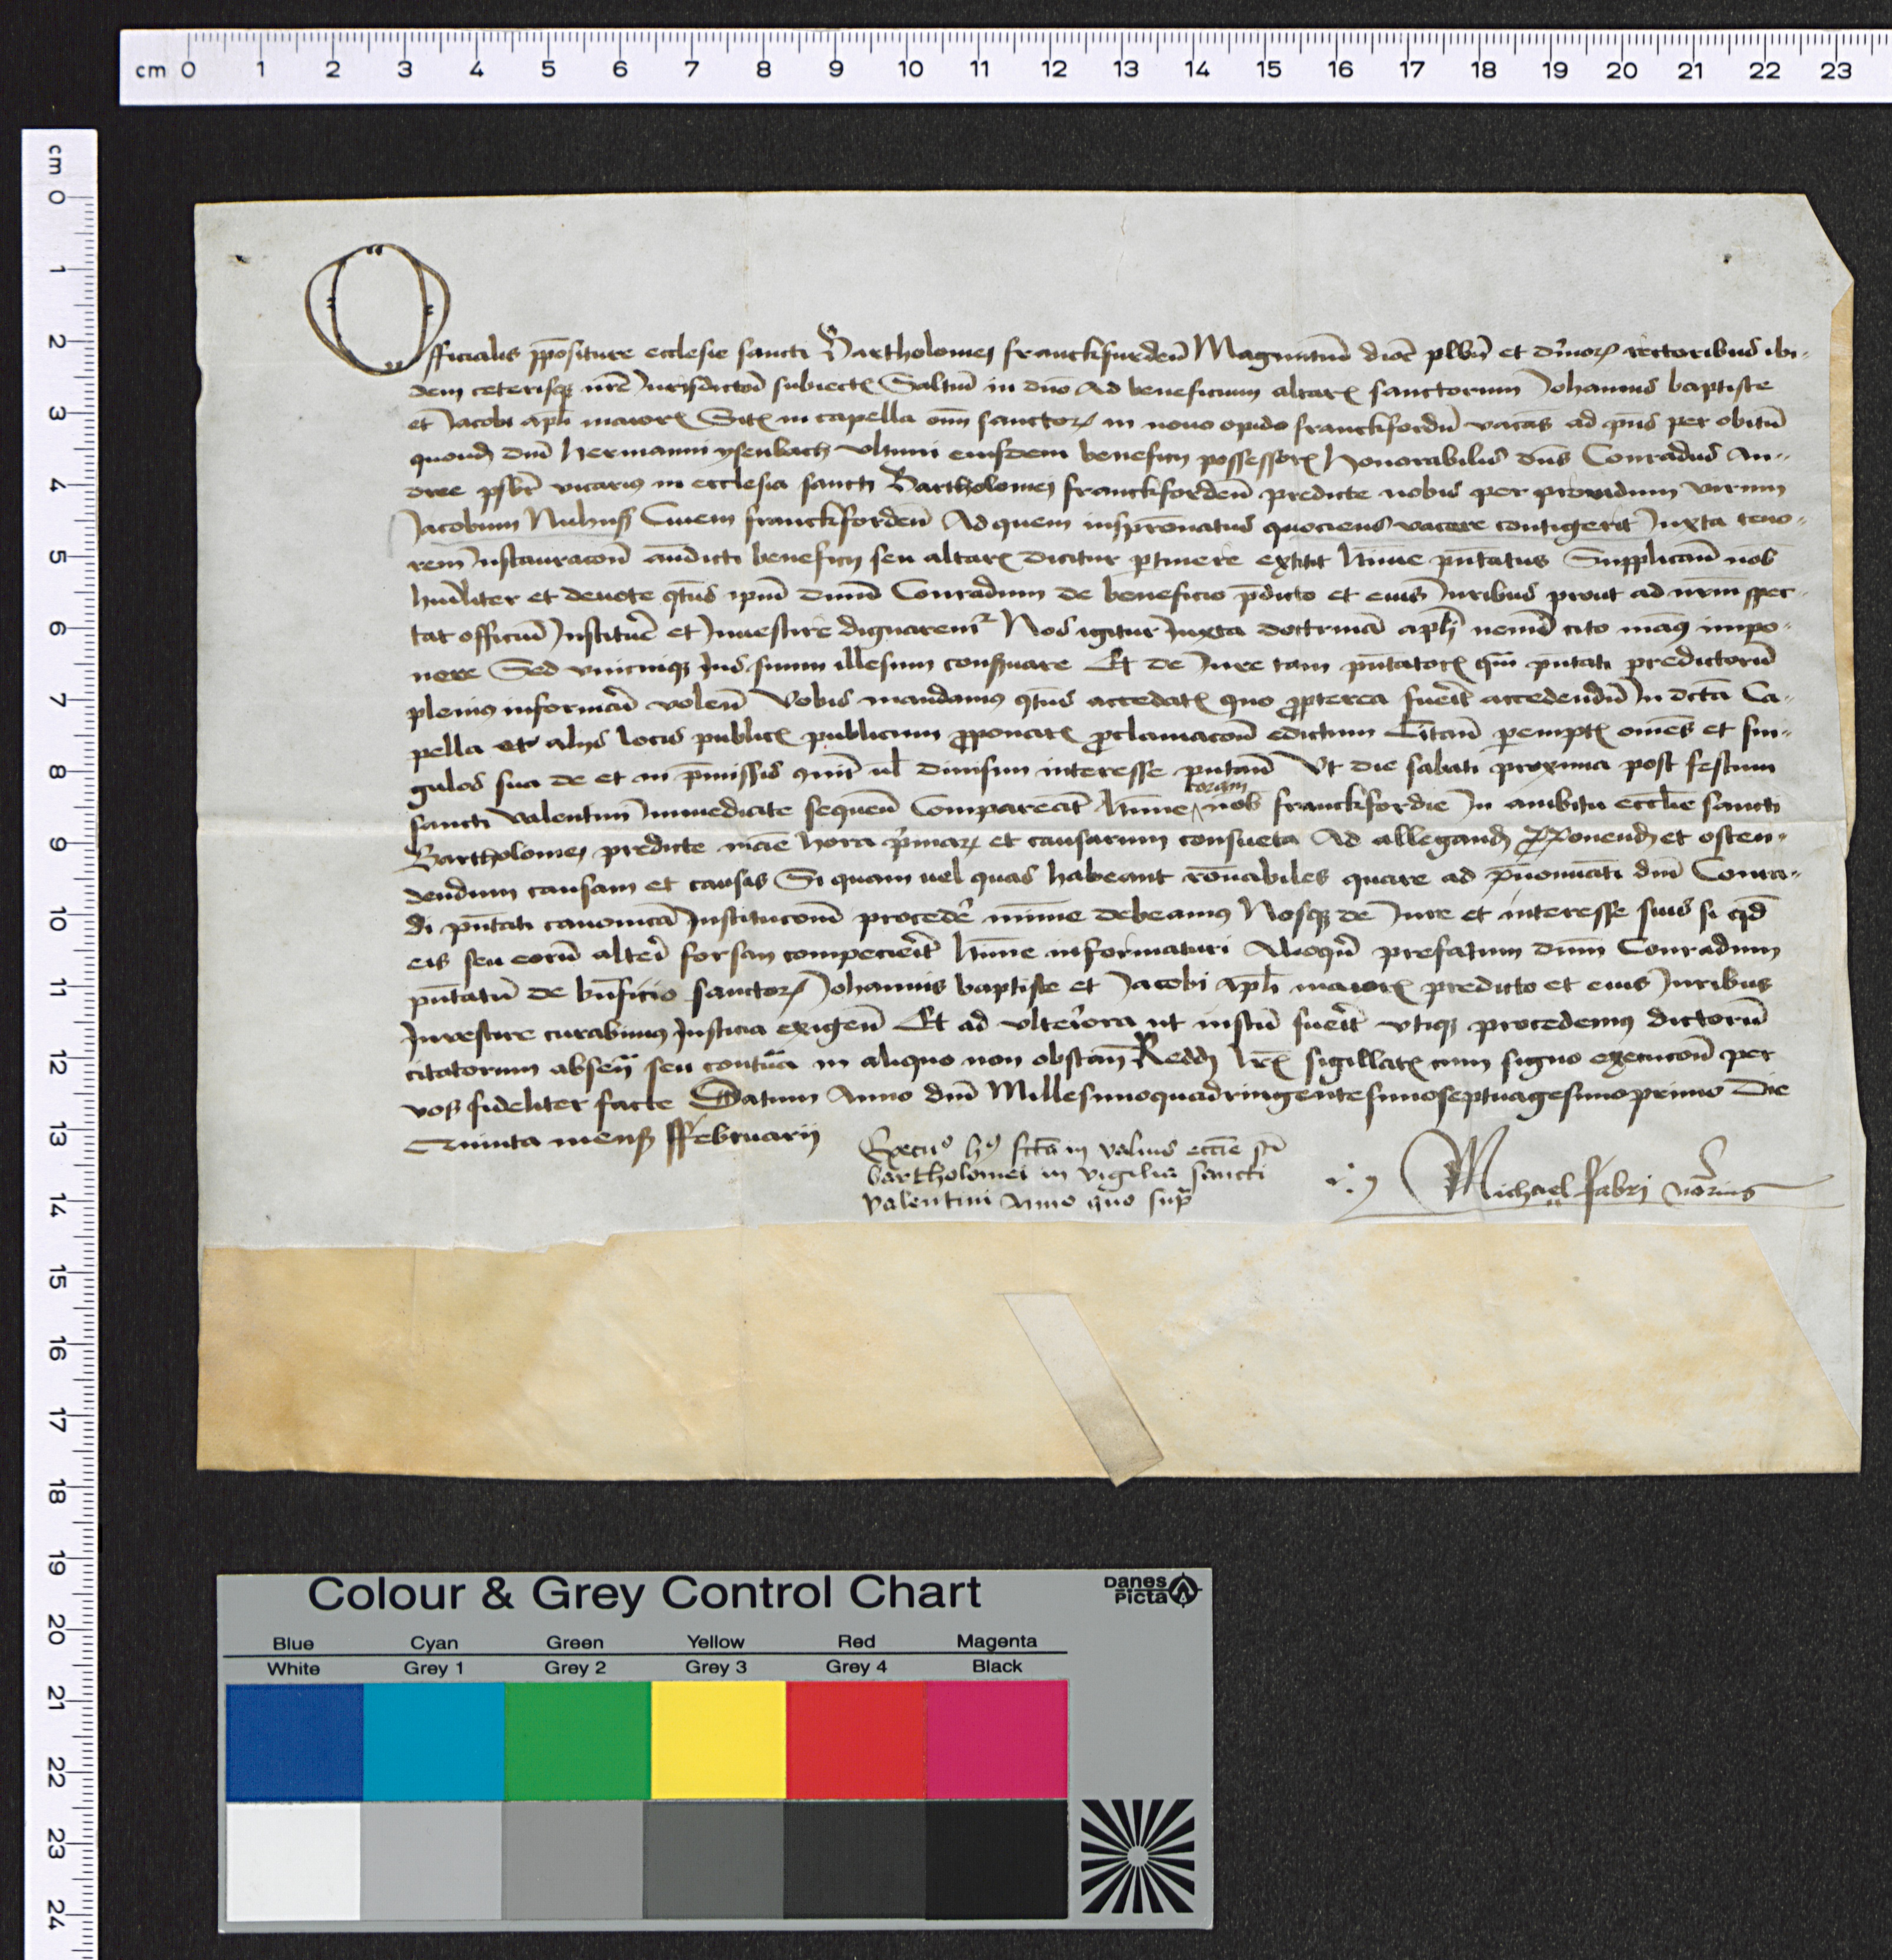 cm 0 1 2 3 4 5 6 7 8 9 10 11 12 13 14 15 16 17 18 19 20 21 22 23
cm 0 1 2 3 4 5 6 7 8 9 10 11 12 13 14 15 16 17 18 19 20 21 22 23 24
Officialis ꝓpositure ecclesie sancti Bartholomej franckfurdeñ Magūtineñ dioc̄ plbn̄ et dīuorꝝ rectoribus ibi-
dem ceterisqꝫ nr̄e Jurisdictōi subiectꝭ Saltūm in dn̄o Ad beneficium altarꝭ sanctorum Johannis baptiste
et Jacobi apl̄i maiorꝭ Sitꝭ in capella om̄ sanctorꝝ in nouo opido franckfordn̄ vacās ad p̄ns per obitū
quondꝫ dn̄i Hermanni ysenbach vltimi eiusdem beneficij possessorꝭ Honorabilis dn̄s Conradus An-
dree psbr̄ vicarius in ecclesia sancti Bartholomej franckfordeñ predicte nobis per prouidum virum
Jacobum Nuhuß Ciuem franckfordeñ Ad quem iuspr̄onatus quociens vacare contigerit Juxta teno-
rem Instauracōn an̄dicti beneficij seu altarꝭ dicitur ꝑtinere extitit l̄time pn̄tatus Supplicaūt nob̄
hūiliter et deuote qt̄us ipm̄ dnm̄ Conradum de beneficio p̄dicto et eius Juribus prout ad nr̄m spec-
tat officiū Instituēr et Inuestire dignaremur Nos igitur Juxta doctrinā apl̄i nemī cito manꝰ impo-
nere Sed vnicuiqꝫ Jus suum illesum conseruare Et de Jure tam pn̄tatorꝭ qm̄ pn̄tati predictorū
pleniꝰ informari volen̄ Vobis mandamus qt̄us accedatꝭ quo ꝓpterea fuerit accedendū In dcta Ca-
pella et alijs locis publicꝭ publicum ꝓponatꝭ ꝓclamacōn̄ edictum Citan̄ ꝑemptꝭ omēs et sin-
gulos sua de et in p̄missis qm̄lt ul̄ diuisim interesse putan̄ Vt die sabati proxima post festum
sancti valentini Immediate sequen̄ Compareāt l̄time coram nob̄ franckfordie In ambitu eccl̄ie sancti
Bartholomej predicte mane hora p̄marꝝ et causarum consueta Ad allegandꝫ ꝓponendꝫ et osten-
dendum causam et causas Si quam uel quas habeant rōnabiles quare ad p̄nominati dn̄i Conra-
di pn̄tati canonicā Institucōn̄ procedēr mīme debeamus Nosqꝫ de Jure et interesse suis si qd̄
eis seu eorū alteri forsan competierīt l̄time informaturi Alioqn̄ prefatum dnm̄ Conradum
pn̄tatū de bn̄ficio sanctorꝝ Johannis baptiste et Jacobi apl̄i maiorꝭ predicto et eius Juribus
Inuestire curabimus Justicia exigen̄ Et ad vlteriora ut iustū fuerit vtiqꝫ procedemꝰ dictorū
citatorum absen̄ seu contūa in aliquo non obstan̄ Reddꝫ lr̄ꝭ sigillatꝭ cum signo execucōn̄ per
vos fideliter facte Datum Anno dn̄i Millesimoquadringentesimoseptuagesimoprimo Die
Quinta menß ffebruarij
Execuo hꝰ fcta in valuis eccl̄ie sc̄i
bartholomei in vigilia sancti
valentini Anno quo supra
Michael fabri notarius
Colour & Grey Control Chart
Danes Picta
Blue Cyan Green Yellow Red Magenta
White Grey 1 Grey 2 Grey 3 Grey 4 Black